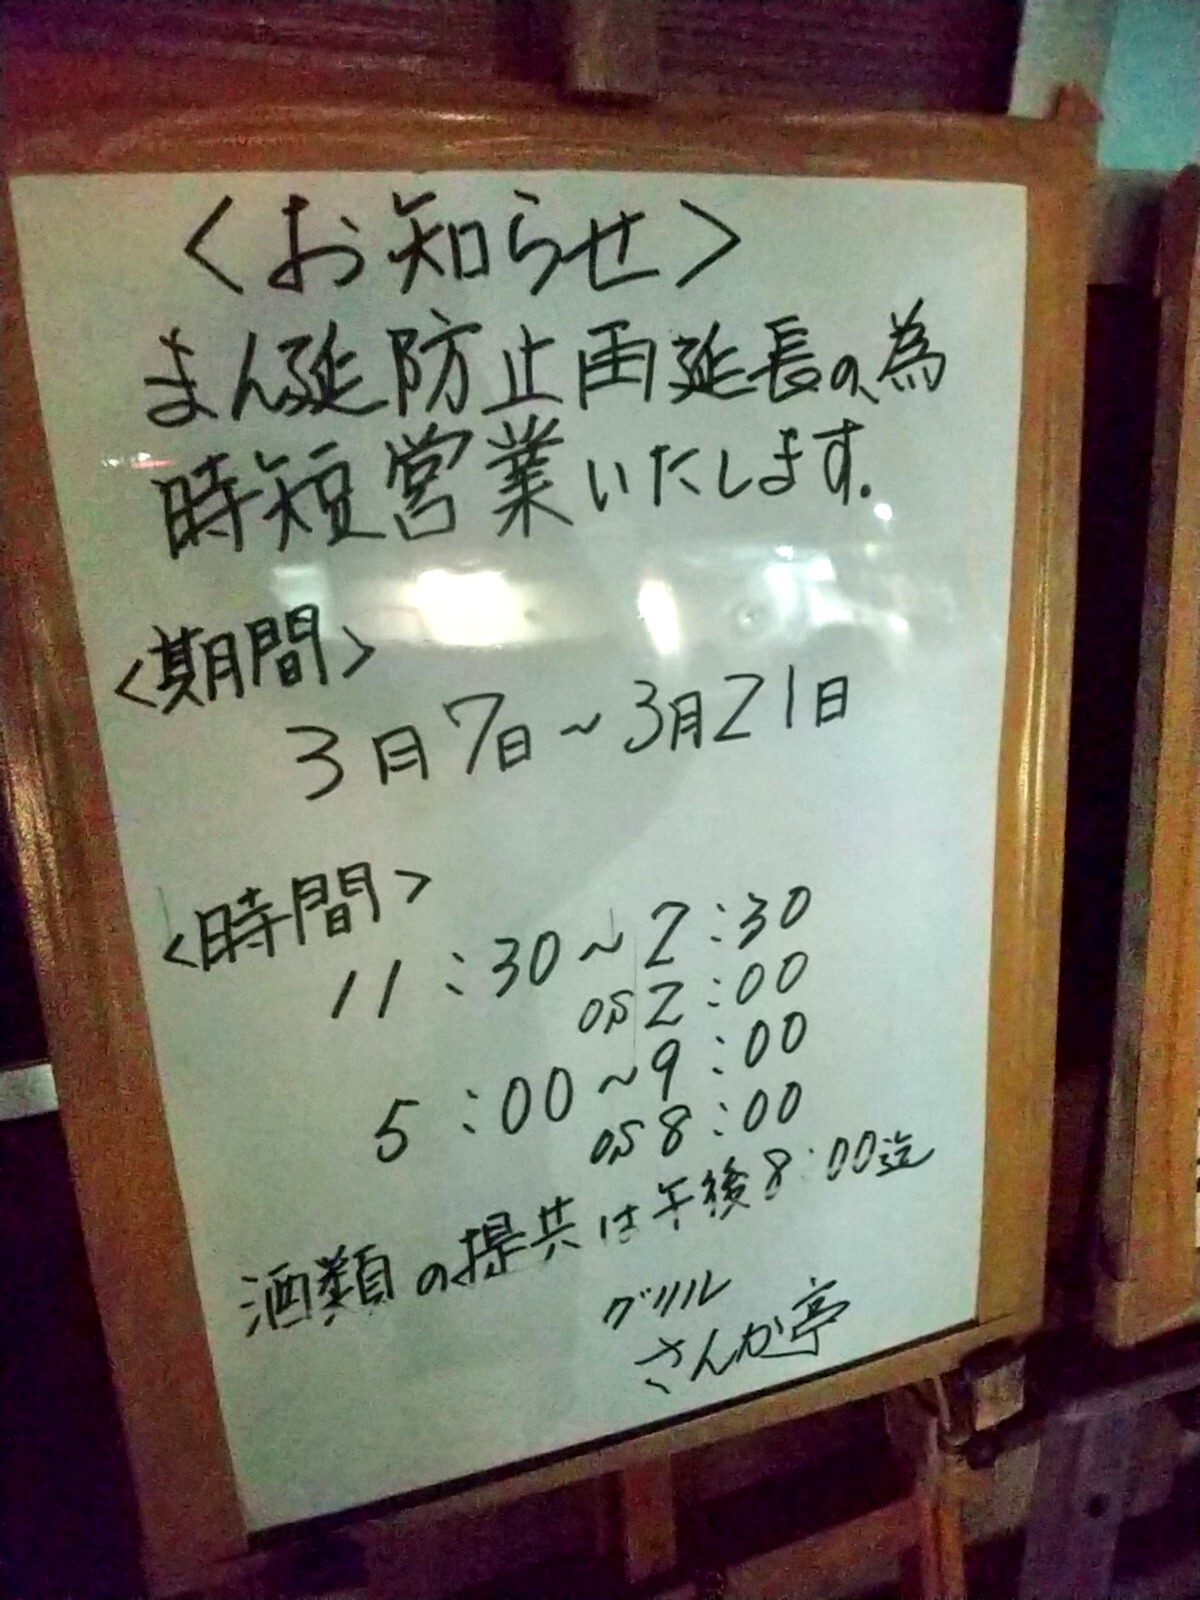 <お知らせ>
まん延防止再延長の為
時短営業いたします.
<期間>
3月7日~3月21日
<時間>
11:30~2:30
os 2:00
5:00~9:00
os 8:00
酒類の提供は午後8:00迄
グリル
さんか亭